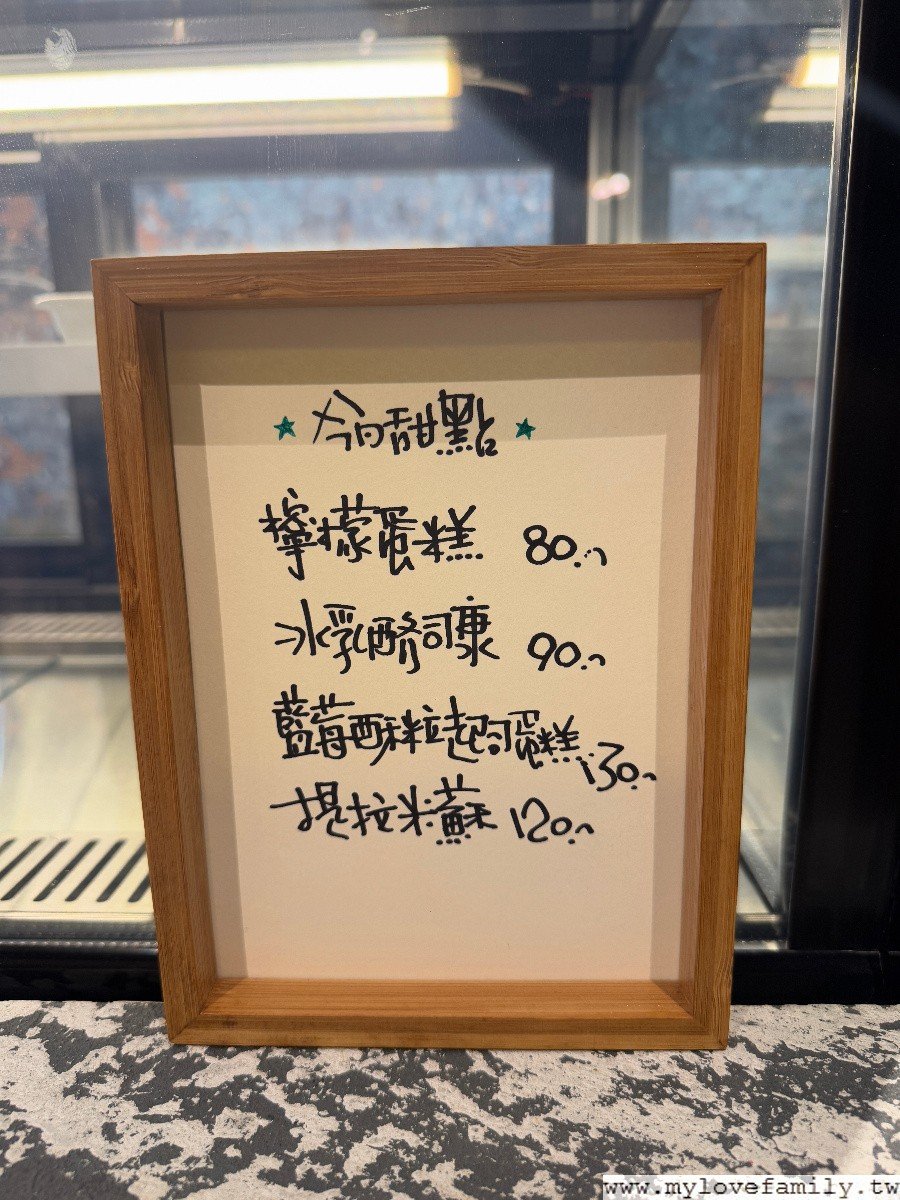 ★今日甜點★
檸檬蛋糕 80.
冰乳酪司康 90.
藍莓酥粒起司蛋糕 130.
提拉米蘇 120.
www.mylovefamily.tw